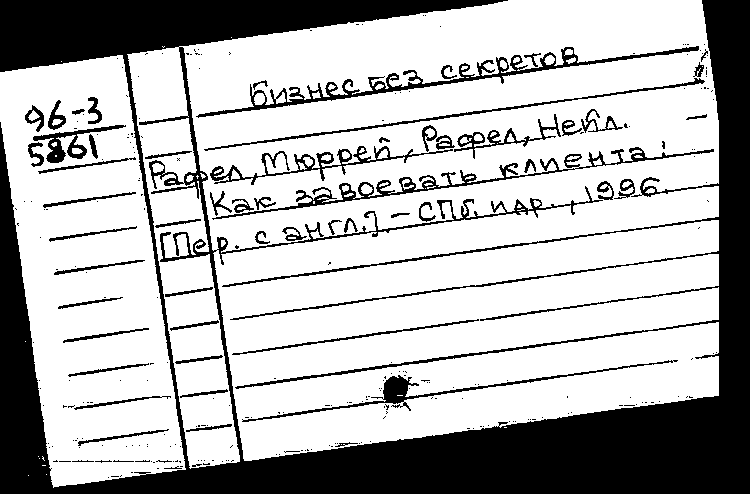 Бизнес без секретов
96-3
5861
Рафел, Мюррей, Рафел, Нейл.
Как завоевать клиента:
[Пер. с англ.]. – СПб. идр., 1996.